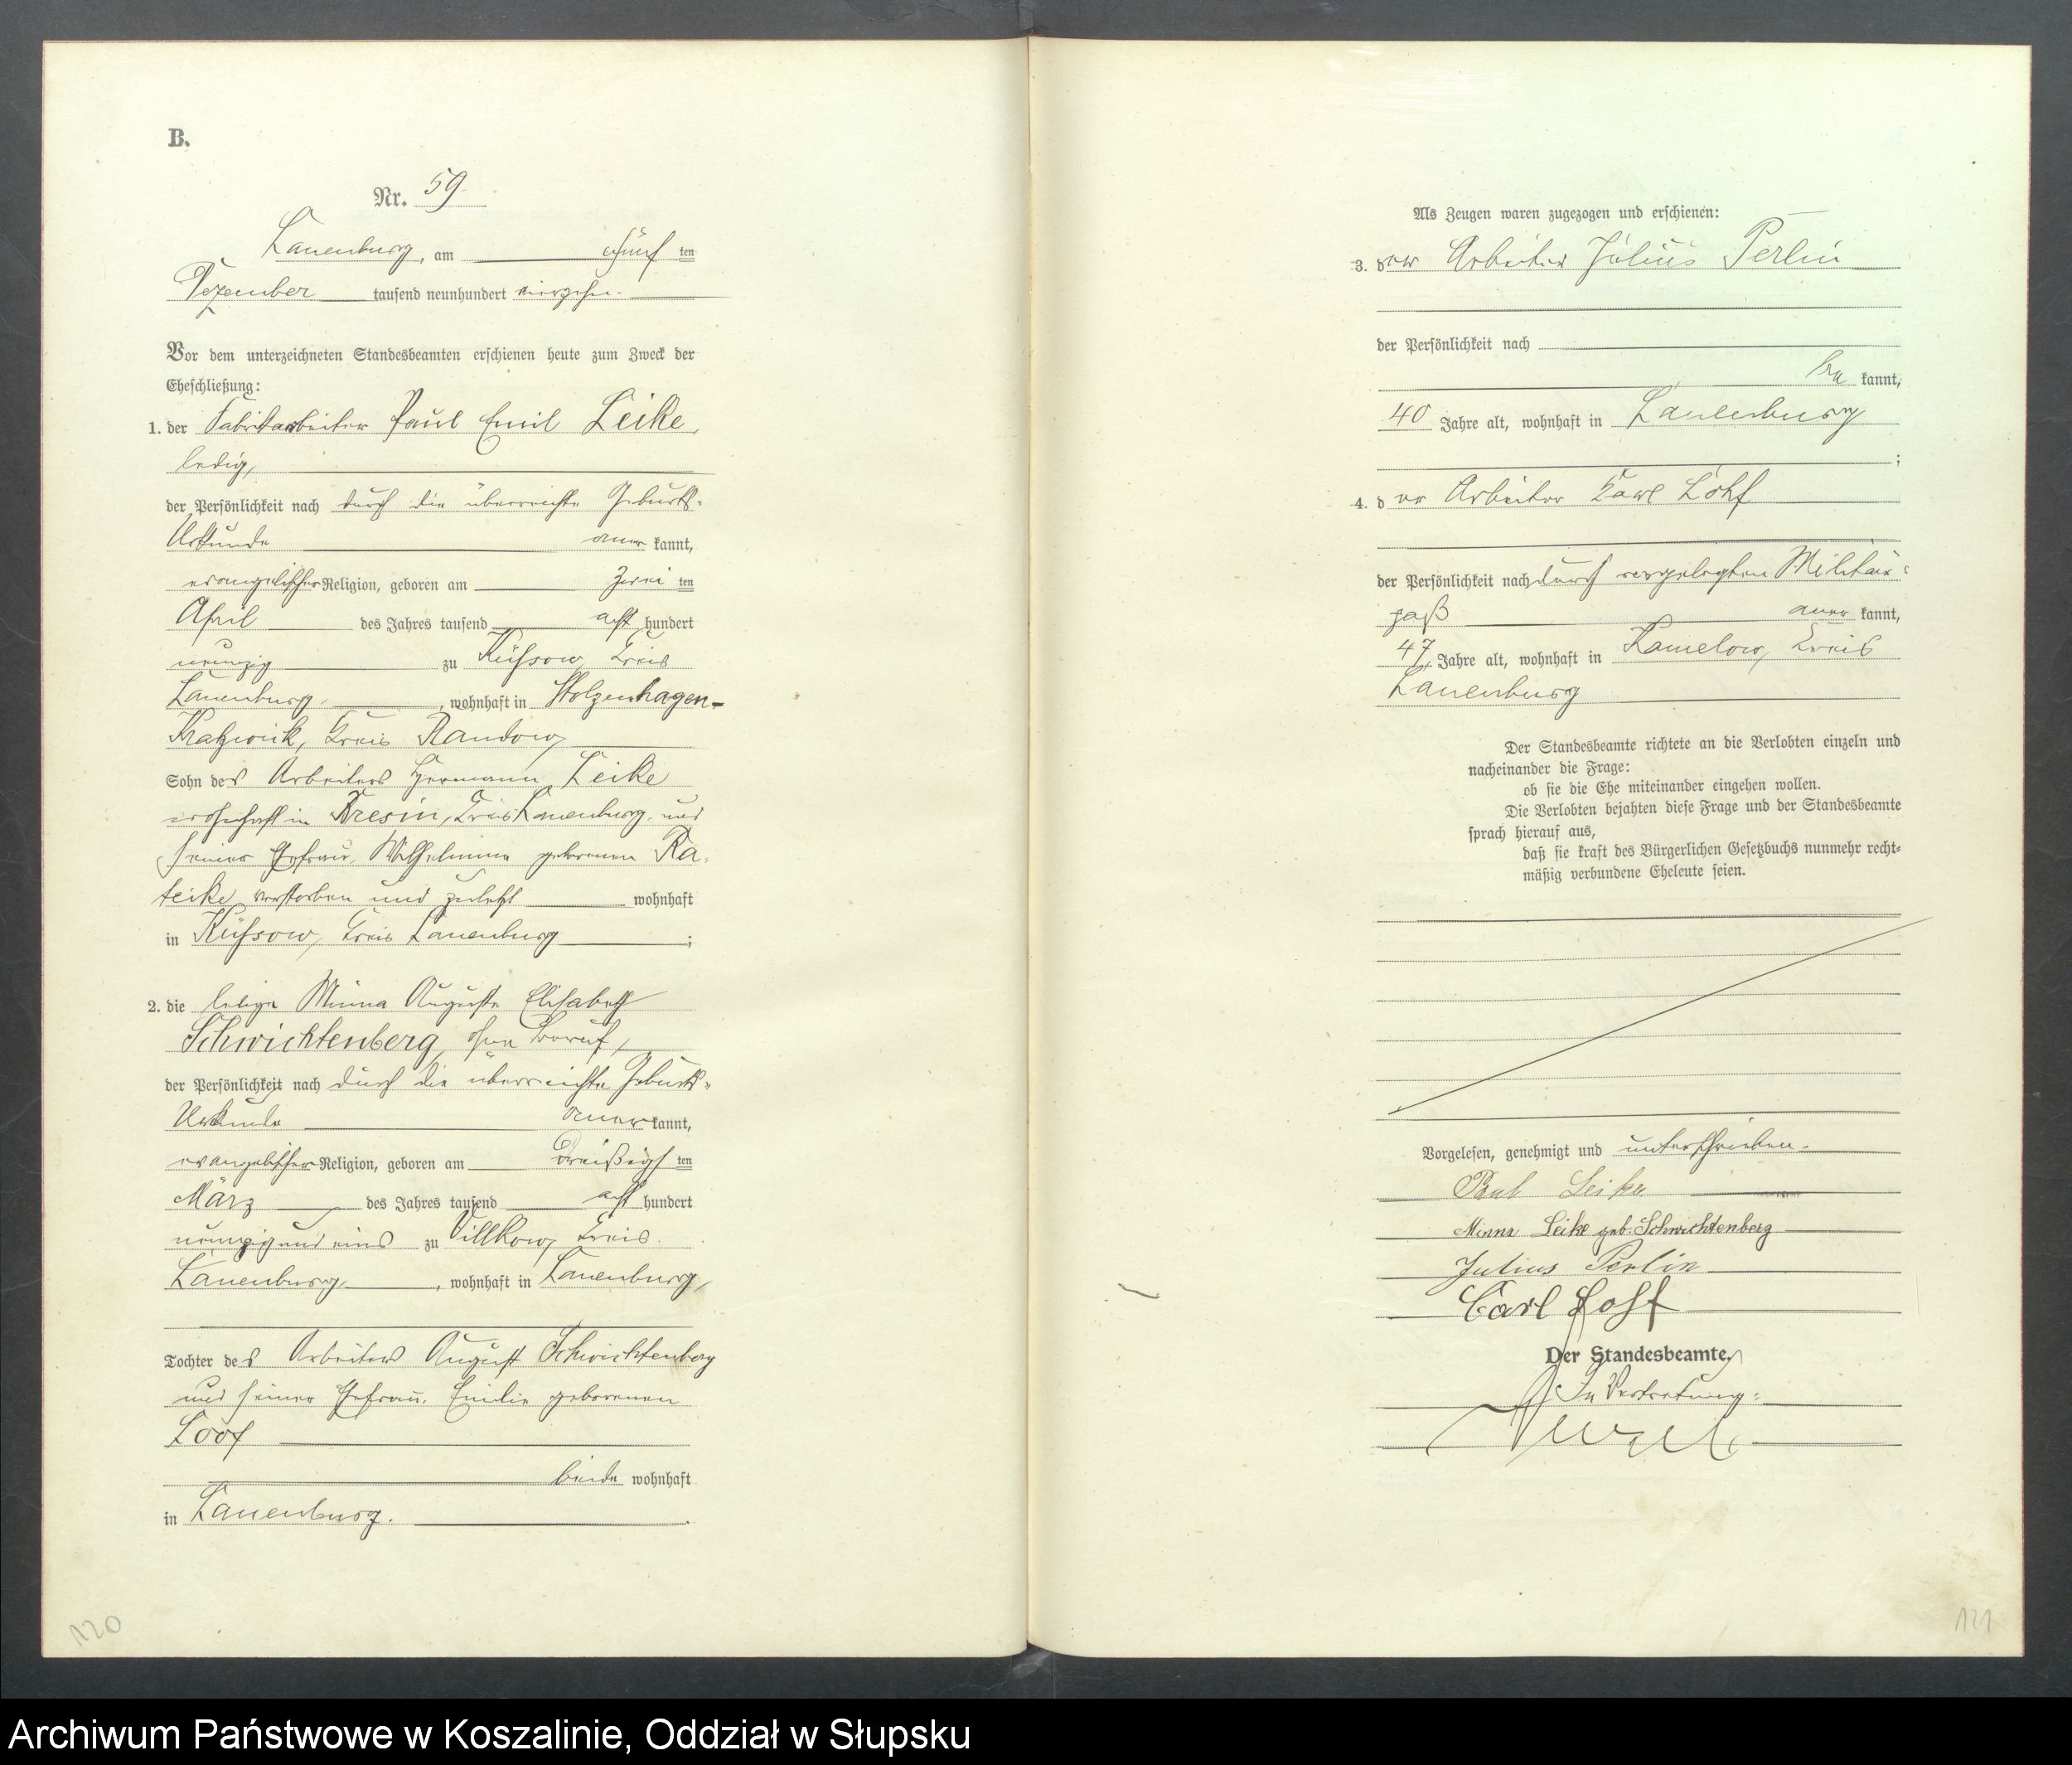 B.
Nr. 59.
Lauenburg, am fünf ten
Dezember tausend neunhundert vierzehn.
Vor dem unterzeichneten Standesbeamten erschienen heute zum Zweck der
Eheschließung:
1. der Fabrikarbeiter Paul Emil Leike,
ledig,
der Persönlichkeit nach durch die überreichte Geburts-
Urkunde aner kannt,
evangelischer Religion, geboren am zwei ten
April des Jahres tausend acht hundert
neunzig zu Küssow, Kreis
Lauenburg, wohnhaft in Stolzenhagen-
Kratzwick, Kreis Randow,
Sohn des Arbeiters Hermann Leike
wohnhaft in Kresin, Kreis Lauenburg, und
seiner Ehefrau, Wilhelmine geborenen Ra-
teike, verstorben und zuletzt wohnhaft
in Küssow, Kreis Lauenburg ;
2. die ledige Minna Auguste Elisabeth
Schwichtenberg, ohne Beruf,
der Persönlichkeit nach durch die überreichte Geburts-
Urkunde aner kannt,
evangelischer Religion, geboren am dreißigst ten
März des Jahres tausend acht hundert
neunzig und eins zu Villkow, Kreis
Lauenburg, wohnhaft in Lauenburg,
Tochter des Arbeiters August Schwichtenberg
und seiner Ehefrau, Emilie geborenen
Loof
beide wohnhaft
in Lauenburg.
120
Als Zeugen waren zugezogen und erschienen:
3. der Arbeiter Julius Perlin
der Persönlichkeit nach
be kannt,
40 Jahre alt, wohnhaft in Lauenburg
;
4. der Arbeiter Karl Lohf
der Persönlichkeit nach durch vorgelegten Militär-
paß aner kannt,
47 Jahre alt, wohnhaft in Kamelow, Kreis
Lauenburg
Der Standesbeamte richtete an die Verlobten einzeln und
nacheinander die Frage:
ob sie die Ehe miteinander eingehen wollen.
Die Verlobten bejahten diese Frage und der Standesbeamte
sprach hierauf aus,
daß sie kraft des Bürgerlichen Gesetzbuchs nunmehr recht-
mäßig verbundene Eheleute seien.
Vorgelesen, genehmigt und unterschrieben.
Paul Leike
Minna Leike geb. Schwichtenberg
Julius Perlin
Carl Lohf
Der Standesbeamte.
In Vertretung:
121
Archiwum Państwowe w Koszalinie, Oddział w Słupsku